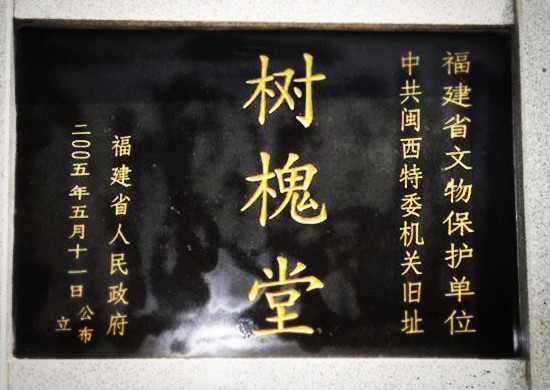 福建省文物保护单位
中共闽西特委机关旧址
树槐堂
福建省人民政府
二〇〇五年五月十一日公布
立